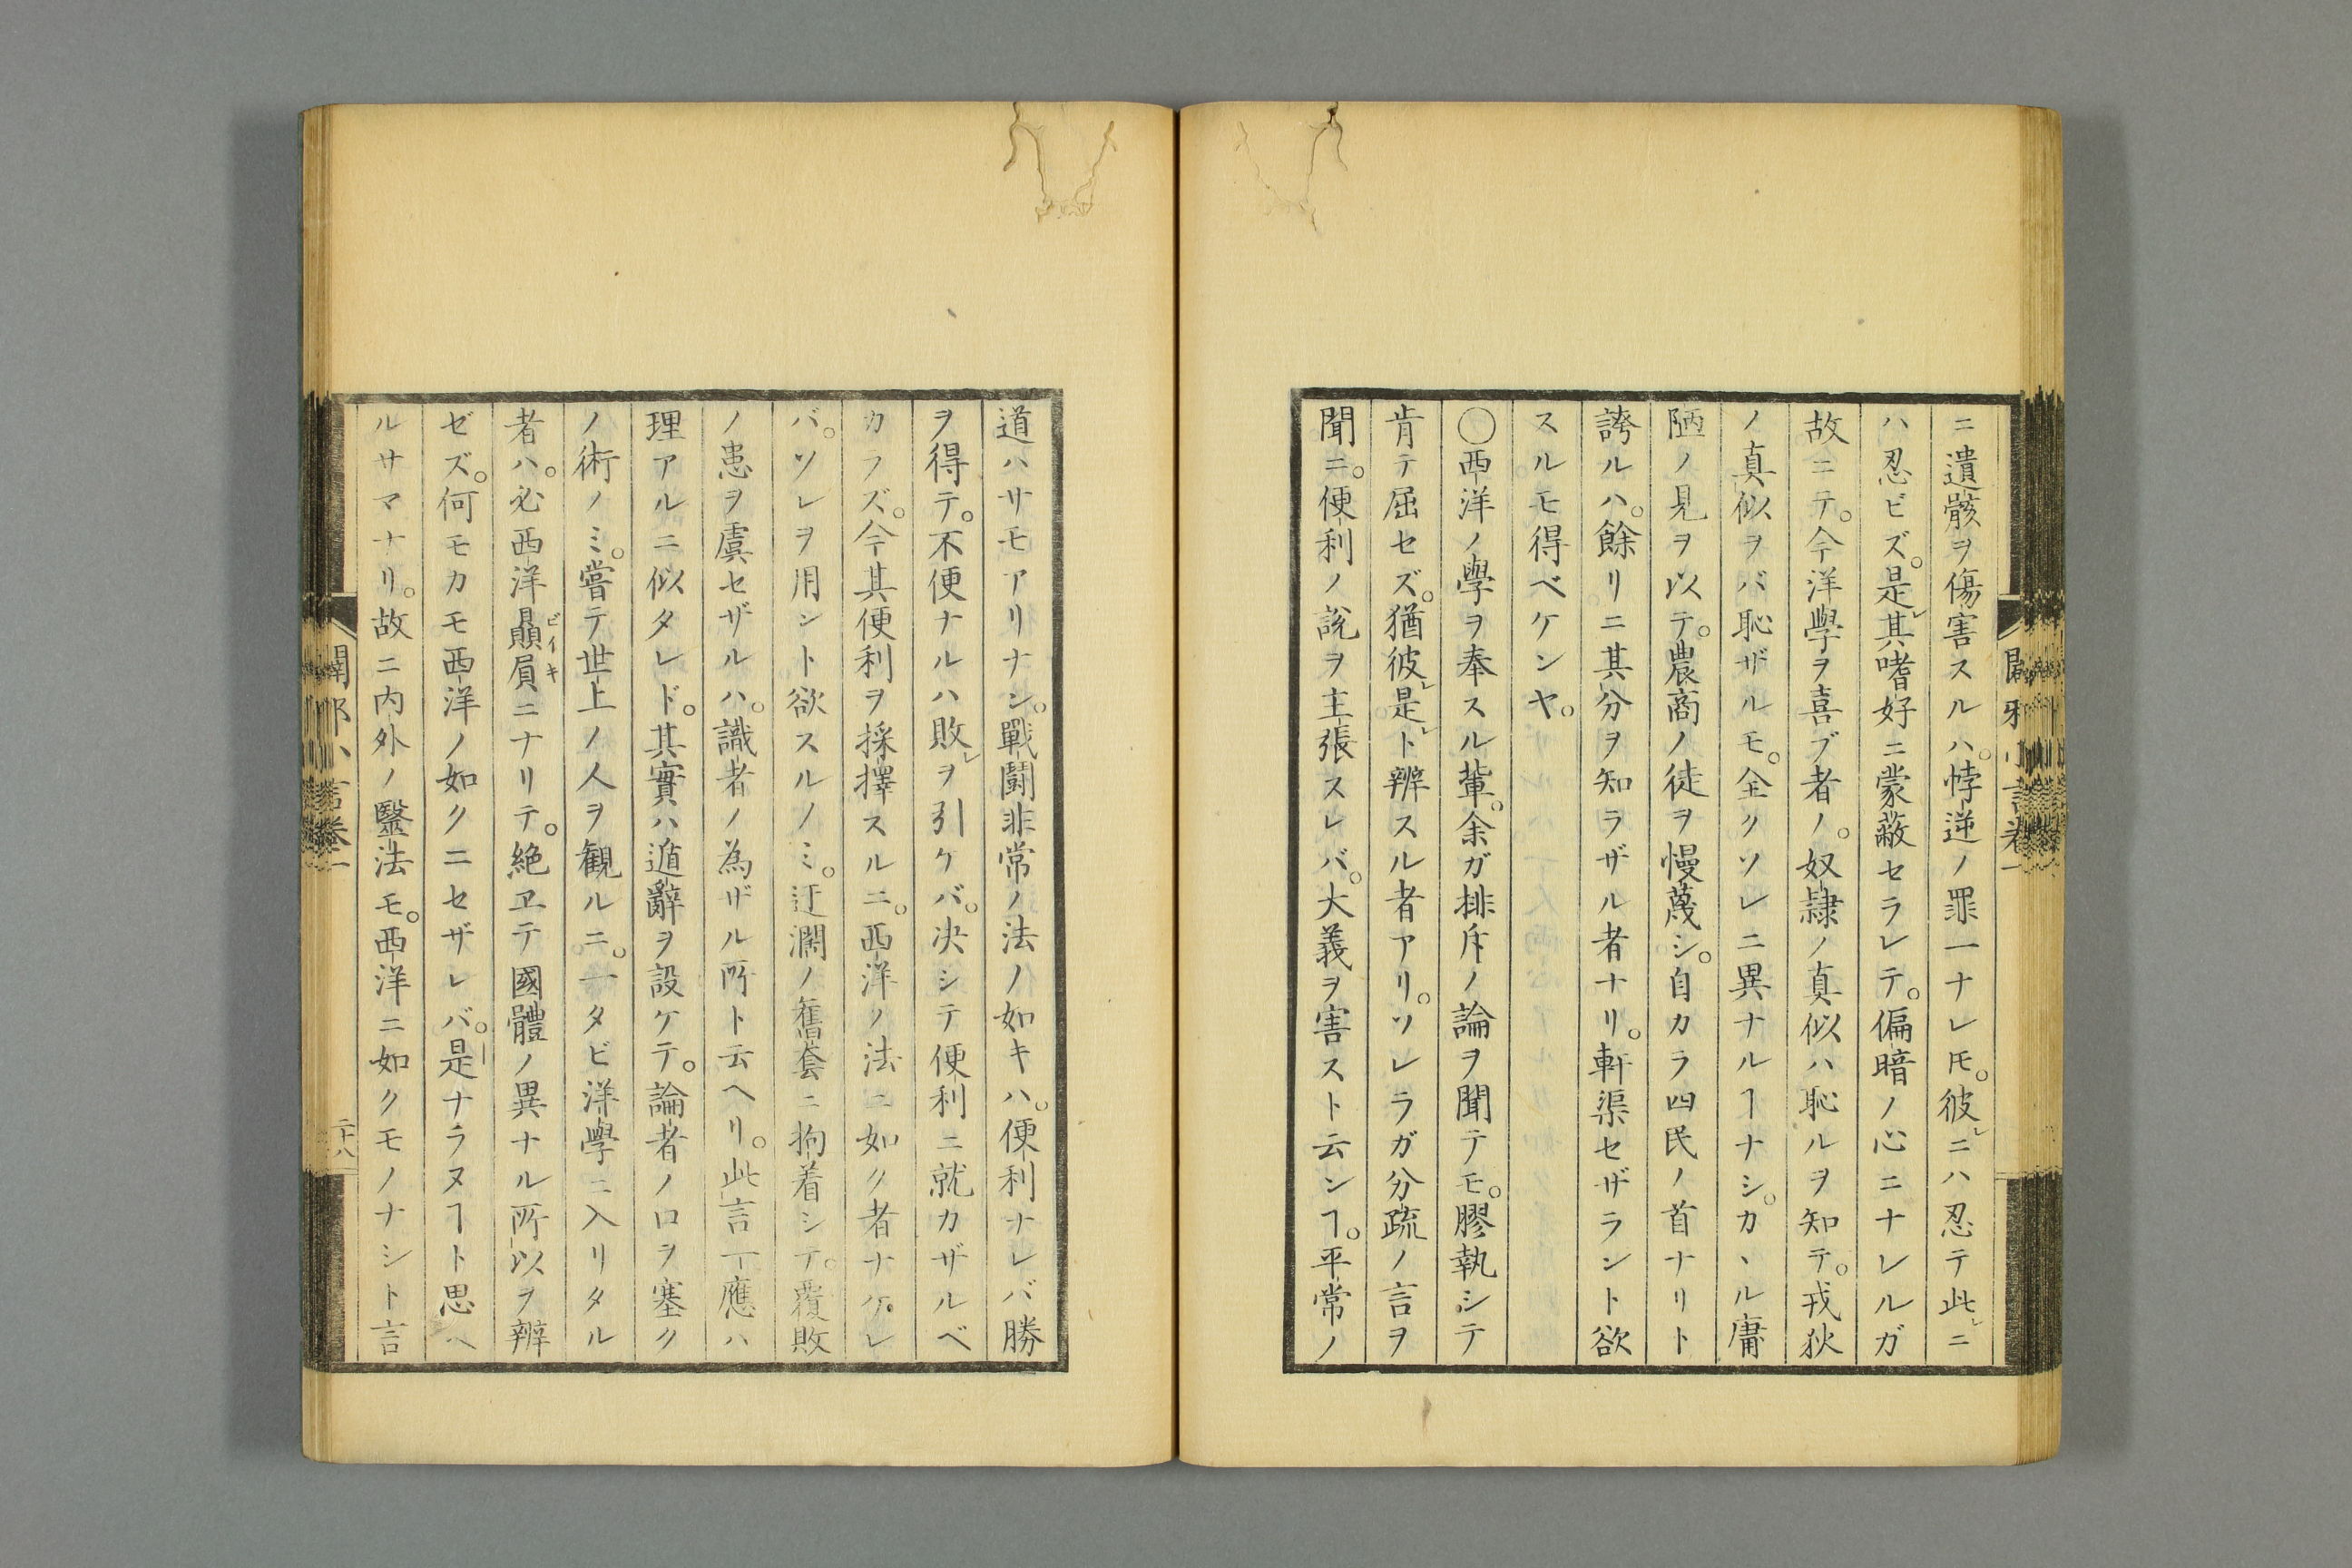 闢邪小言卷一
ニ遺骸ヲ傷害スルハ。悖逆ノ罪一ナレㇳモ。彼レニハ忍テ此レニ
ハ忍ビズ。是レ其嗜好ニ蒙蔽セラレテ。偏暗ノ心ニナレルガ
故ニテ。今洋學ヲ喜ブ者ノ。奴隷ノ真似ハ恥ルヲ知テ。戎狄
ノ真似ヲバ恥ザルモ。全クソレニ異ナルヿナシ。カヽル庸
陋ノ見ヲ以テ。農商ノ徒ヲ慢蔑シ。自カラ四民ノ首ナリト
誇ルハ。餘リニ其分ヲ知ラザル者ナリ。軒渠セザラント欲
スルモ得ベケンヤ。
〇西洋ノ學ヲ奉スル輩。余ガ排斥ノ論ヲ聞テモ。膠執シテ
肯テ屈セズ。猶彼レ是レト辨スル者アリ。ソレラガ分疏ノ言ヲ
聞ニ。便利ノ說ヲ主張スレバ。大義ヲ害スト云ンヿ。平常ノ
道ハサモアリナン。戰鬪非常ノ法ノ如キハ。便利ナレバ勝
ヲ得テ。不便ナルハ敗レヲ引ケバ。决シテ便利ニ就カザルベ
カラズ。今其便利ヲ採擇スルニ。西洋ノ法ニ如ク者ナケレ
バ。ソレヲ用ント欲スルノミ。迂濶ノ舊套ニ拘着シテ。覆敗
ノ患ヲ虞セザルハ。識者ノ為ザル所ト云ヘリ。此言一應ハ
理アルニ似タレド。其實ハ遁辭ヲ設ケテ。論者ノ口ヲ塞ク
ノ術ノミ。嘗テ世上ノ人ヲ観ルニ。一タビ洋學ニ入リタル
者ハ。必西洋贔屓ビイキニナリテ。絶エテ國體ノ異ナル所以ヲ辨
ゼズ。何モカモ西洋ノ如クニセザレバ。是ナラヌヿト思ヘ
ルサマナリ。故ニ內外ノ醫法モ。西洋ニ如クモノナシト言
闢邪小言卷一
二十八